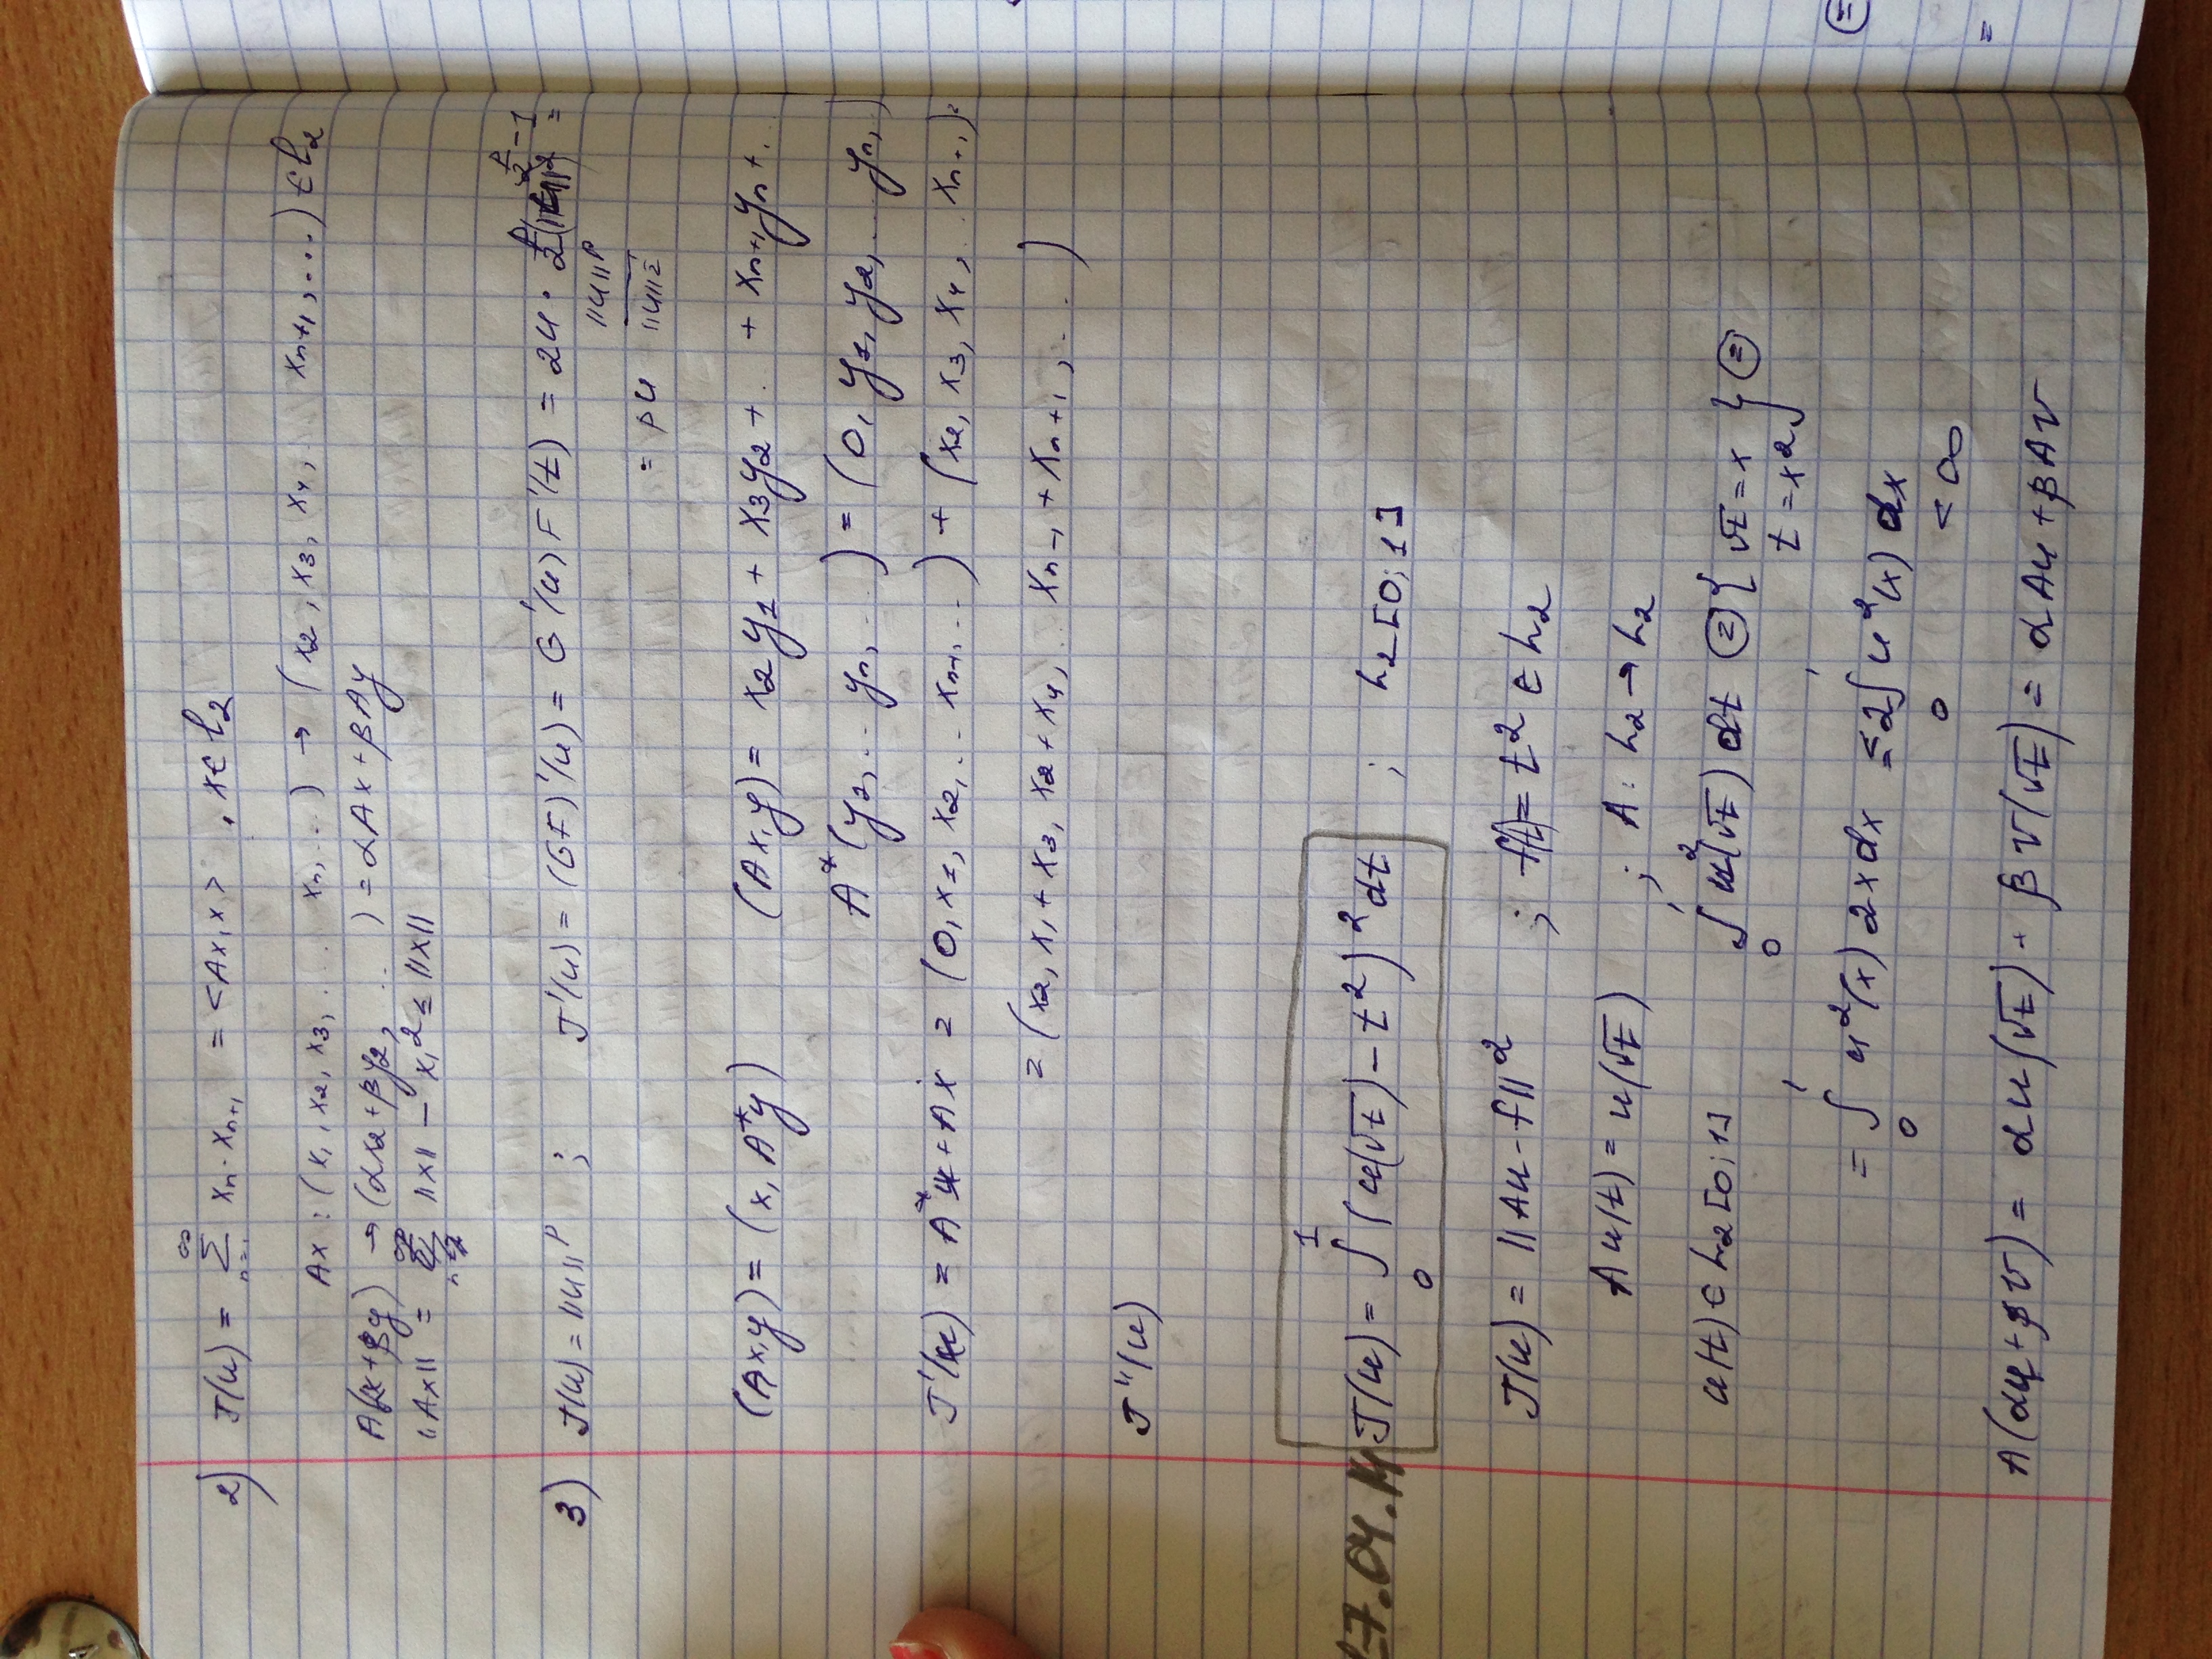 2) J(u) = ∑_{n=1}^{∞} x_n · x_{n+1} = <Ax, x>, x ∈ l_2
Ax : (x_1, x_2, x_3, ... x_n, ...) → (x_2, x_3, x_4, ... x_{n+1}, ...) ∈ l_2
A(αx + βy) → (αx_2 + βy_2, ... ) = αAx + βAy
||Ax|| = ||x|| − x_1^2 ≤ ||x||
3) J(u) = ||u||^p ; J'(u) = (GF)'(u) = G'(u) F'(t) = 2u · p/2 (||u||^2)^{p/2 − 1} =
= pu ||u||^p / ||u||^2
(Ax, y) = (x, A*y) (Ax, y) = x_2y_1 + x_3y_2 + ... + x_{n+1}y_n + ...
A*(y_2, ... y_n, ... ) = (0, y_1, y_2, ... y_n, )
J'(u) = A*x + Ax = (0, x_1, x_2, ... x_{n-1}, ... ) + (x_2, x_3, x_4, ... x_{n+1}, ) =
= (x_2, x_1 + x_3, x_2 + x_4, ... x_{n-1} + x_{n+1}, ... )
J''(u)
17.04.14 J(u) = ∫_0^1 (u(√t) − t^2)^2 dt ; L_2[0;1]
J(u) = ||Au − f||^2 ; f(t) = t^2 ∈ L_2
Au(t) = u(√t) ; A: L_2 → L_2
u(t) ∈ L_2[0;1] ∫_0^1 u^2(√t) dt ⊜ { √t = x t = x^2 } ⊜
= ∫_0^1 u^2(x) 2x dx ≤ 2∫_0^1 u^2(x) dx < ∞
A(αu + βv) = αu(√t) + βv(√t) = αAu + βAv
⊜
=